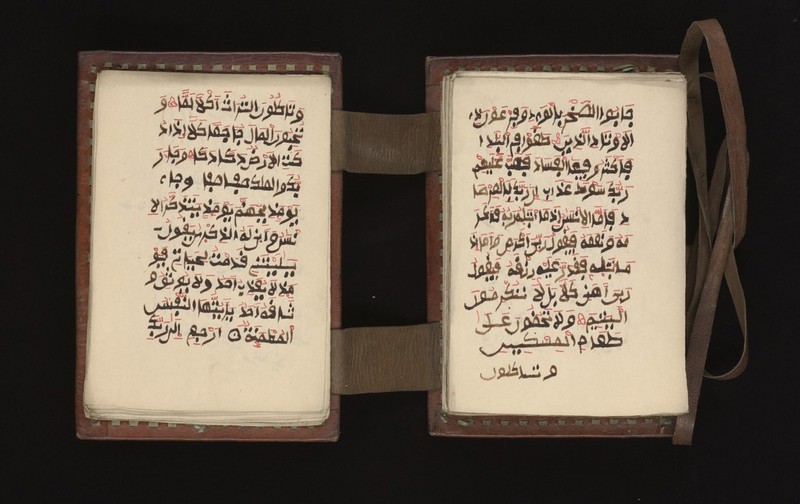 جابوا الصخر بالواد وفرعون ذے
الاوتاد الذين طغوا في البلاد
فاكثروا فيها الفساد فصب عليهم
ربك سوط عذاب ان ربك لبالمرصا
د فاما الانسن اذا ما ابتليه ربه فاكر
مه ونعمه فيقول ربي اكرمن واما اذا
ما ابتليه فقدر عليه رزقه فيقول
ربي اهنن كلا بل لا تكرمون
اليتيم ولا تحضون على
طعام المسكين
وتاكلون
وتاكلون التراث اكلا لما و
تحبون المال حبا جما كلا اذا د
كت الارض دكا دكا وجاء ر
بك والملك صفا صفا وجاء
يومئذ بجهنم يومئذ يتذكر الا
نسن وانى له الذكرى يقول
يليتني قدمت لحياتي فيو
مئذ لا يعذب احد ولا يوثق و
ثاقه احد يايتها النفس
المطمئنة ارجعي الى ربك